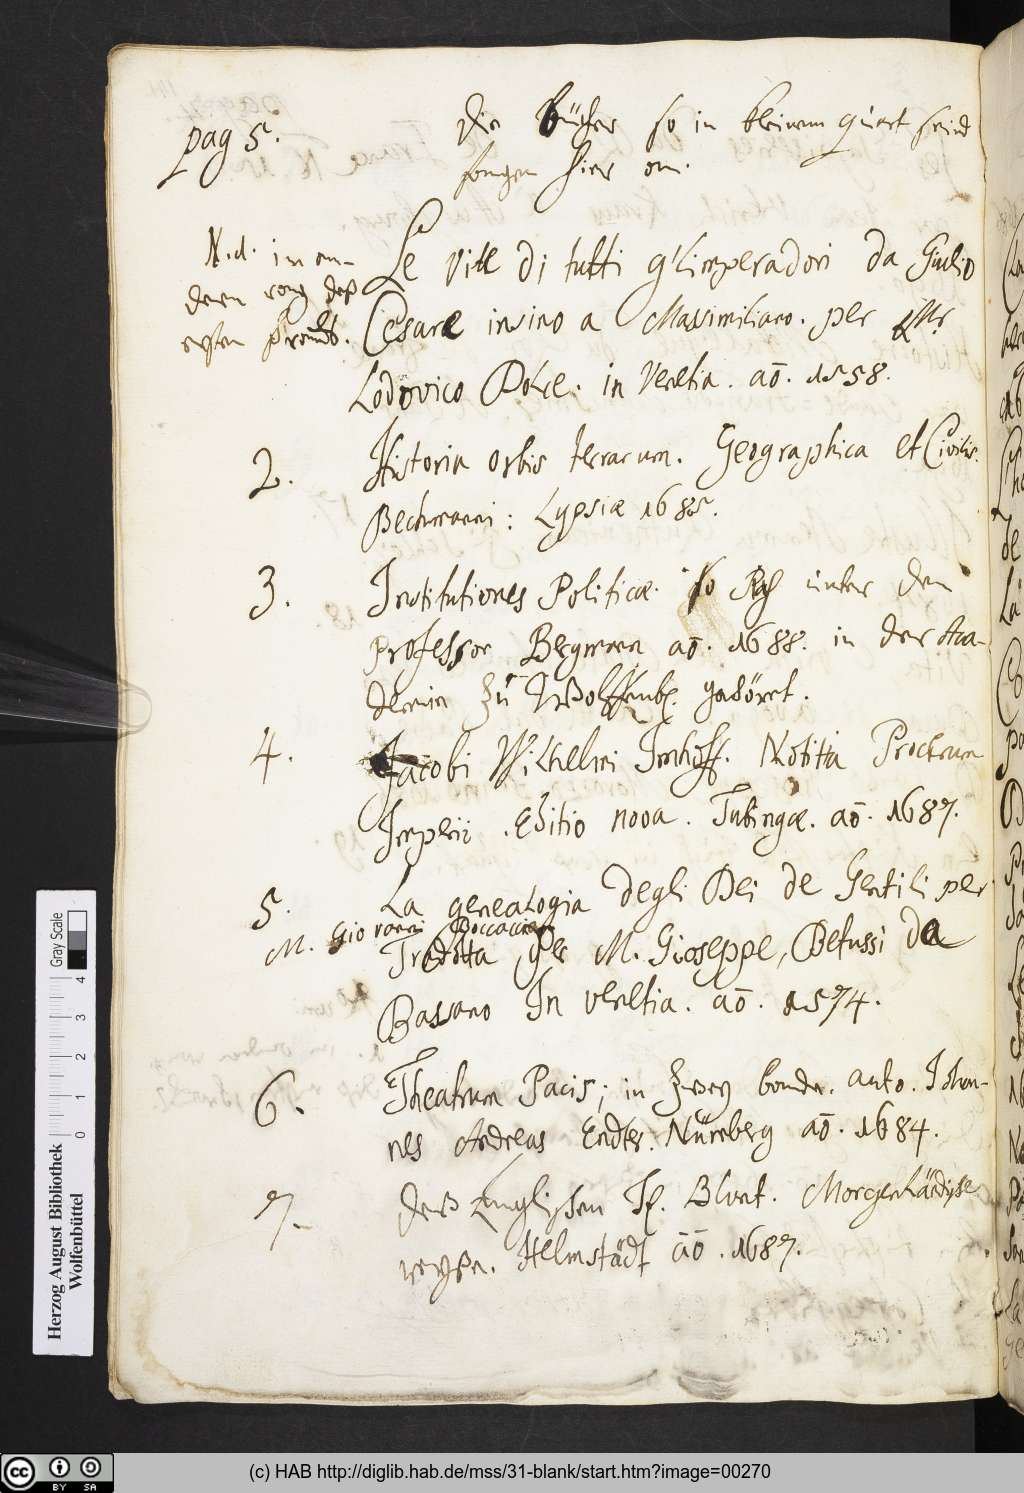 pag 5.
Die bücher so in kleinem quart seind
fangen hier an.
N. 1. in an-
dern rang deß
ersten
Le vite di tutti gl'imperadori da Giulio
Cesare insino a Massimiliano. per Mr
Lodovico Dolce. in Venetia. aō. 1558.
2. Historia orbis terrarum. Geographica et Civilis.
Becmanni: Lypsiæ 1685.
3. Institutiones Politicæ. so ich unter den
Professor Bergmann aō. 1688. in der Aca-
demie zu Wolffenb. gehöret.
4. Jacobi Wilhelmi Imhoff. Notitia Procerum
Imperii. Editio nova. Tubingæ. aō. 1687.
5. La genealogia degli Dei de Gentili per
M. Giovanni Boccaccio
Tradotta per M. Gioseppe, Betussi da
Bassano In venetia. aō. 1574.
6. Theatrum Pacis; in zwey bende. auto. Johan-
nes Andreas Endter. Nürnberg aō. 1684.
7. deß Englischen Blunt. Morgenländische
reyßen. Helmstädt aō. 1687.
Herzog August Bibliothek
Wolfenbüttel
0 1 2 3 4
Gray Scale
cc BY SA
(c) HAB http://diglib.hab.de/mss/31-blank/start.htm?image=00270